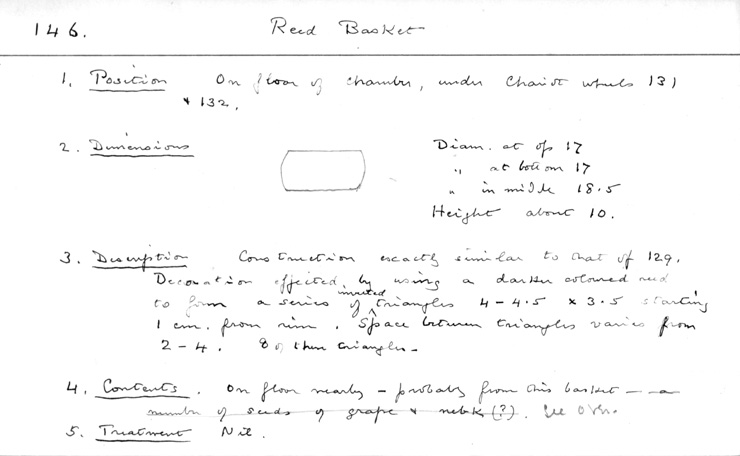 146. Reed Basket
1. Position On floor of chamber, under Chariot wheels 131
+ 132.
2. Dimensions Diam. at op 17
" at bottom 17
" in middle 18.5
Height about 10.
3. Description Construction exactly similar to that of 129.
Decoration effected by using a darker coloured reed
to form a series of inverted triangles 4-4.5 x 3.5 starting
1 cm. from rim. Space between triangles varies from
2-4. 8 of these triangles.
4. Contents. On floor nearby - probably from this basket - a
number of seeds of grape + nebk (?). See Over.
5. Treatment Nil.